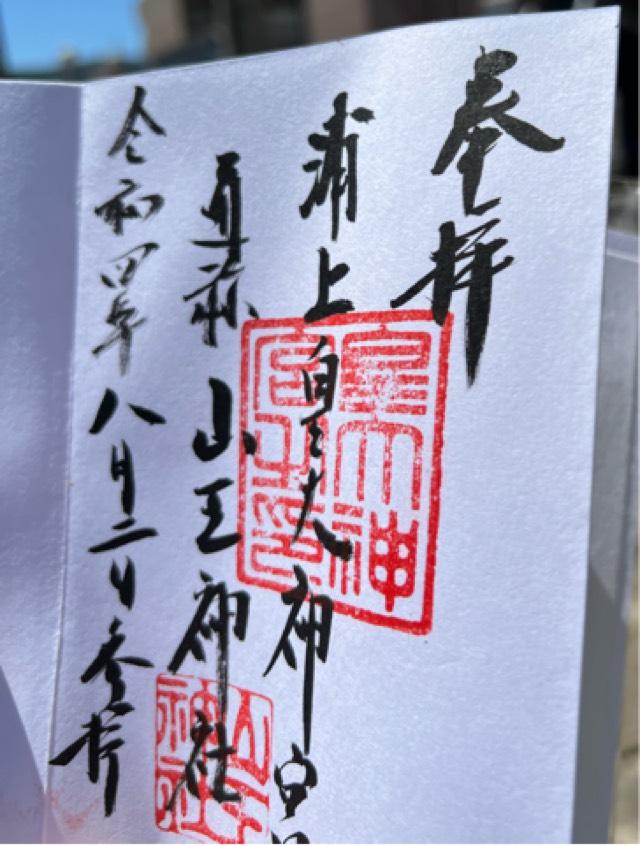 奉拝
浦上皇大神宮
元社 山王神社
令和四年八月二日参拝
皇大神宮之印
山王神社